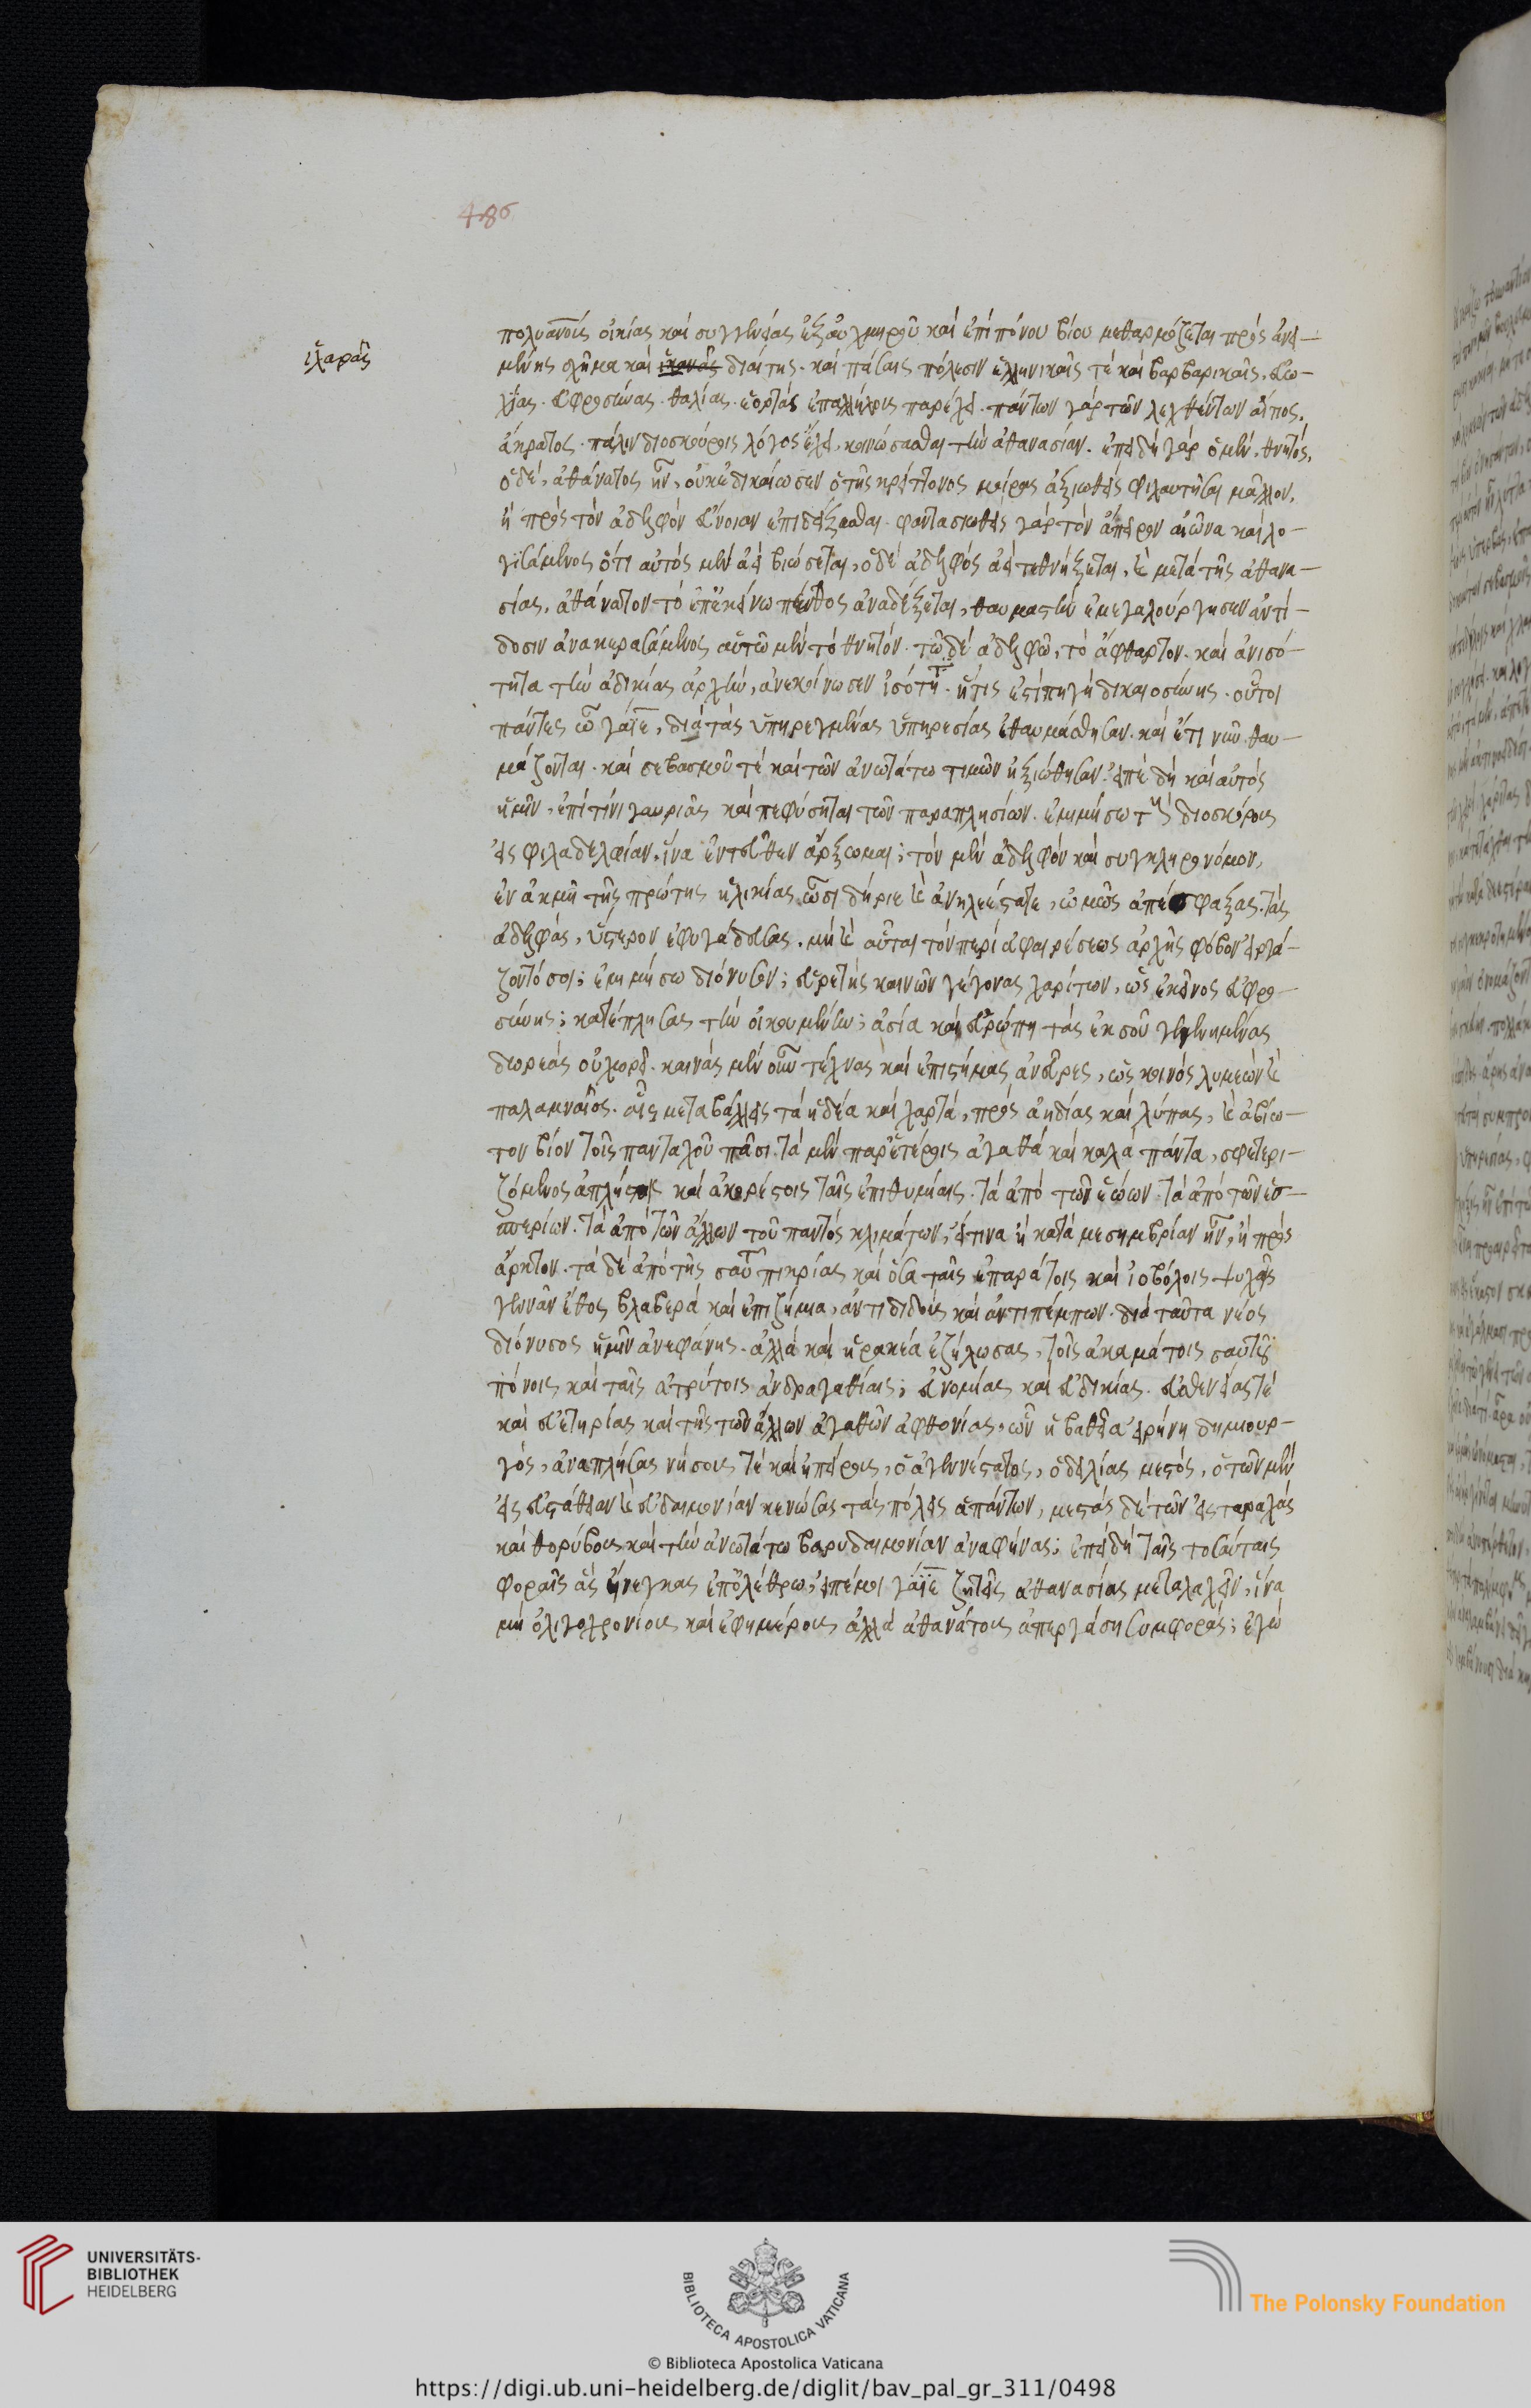 486
ἱλαρᾶς
πολυανοίς οἰκίας καὶ συγγενείας ἐξ αὐχμηροῦ καὶ ἐπιπόνου βίου μεθαρμόζεται πρὸς ἀνει-
μένης σχῆμα καὶ ἱκανᾶς διαίτης. καὶ πάσαις πόλεσιν ἑλληνικαῖς τὲ καὶ βαρβαρικαῖς, εὐω-
χίας. εὐφροσύνας. θαλίας. ἑορτὰς ἐπαλλήλοις παρέχει. πάντων γὰρ τῶν λεχθέντων αἴτιος.
ἄκρατος. πάλιν διοσκούροις λόγος ἔχει, κοινώσασθαι τὴν ἀθανασίαν. ἐπειδὴ γὰρ ὁ μὲν, θνητὸς,
ὁ δὲ, ἀθάνατος ἦν, οὐκ ἐδικαίωσεν ὁ τῆς κρείττονος μοίρας ἀξιωθεὶς φιλαυτῆσαι μᾶλλον,
ἢ πρὸς τὸν ἀδελφὸν εὔνοιαν ἐπιδείξασθαι. φαντασιωθεὶς γὰρ τὸν ἄπειρον αἰῶνα καὶ λο-
γισάμενος ὅτι αὐτὸς μὲν ἀεὶ βιώσεται, ὁ δὲ ἀδελφὸς ἀεὶ τεθνήξεται, καὶ μετὰ τῆς ἀθανα-
σίας, ἀθάνατον τὸ ἐπ' ἐκείνω πένθος ἀναδέξεται, θαυμαστὴν ἐμεγαλούργησεν ἀντί-
δοσιν ἀνακερασάμενος αὑτῶ μὲν τὸ θνητόν. τῶ δὲ ἀδελφῶ, τὸ ἄφθαρτον. καὶ ἀνισό-
τητα τὴν ἀδικίας ἀρχὴν, ἀνεκοίνωσεν ἰσότητι. ἥτις ἐστὶ πηγὴ δικαιοσύνης. οὗτοι
πάντες ὦ γάϊε, διὰ τὰς ὑπηργμένας ὑπηρεσίας ἐθαυμάσθησαν. καὶ ἔτι νῦν θαυ-
μάζονται. καὶ σεβασμοῦ τὲ καὶ τῶν ἀνωτάτω τιμῶν ἠξιώθησαν. εἰπὲ δὴ καὶ αὐτὸς
ἡμῖν, ἐπὶ τίνι γαυριᾶς καὶ πεφύσηται τῶν παραπλησίων. ἐμιμήσω τοὺς διοσκόροις
εἰς φιλαδελφίαν, ἵνα ἐντεῦθεν ἄρξωμαι; τὸν μὲν ἀδελφὸν καὶ συγκληρονόμον,
ἐν ἀκμῆ τῆς πρώτης ἡλικίας ὦ σιδήριε καὶ ἀνηλεέστατε, ὠμῶς ἀπέσφαξας. τὰς
ἀδελφὰς, ὕστερον ἐφυγάδευσας. μὴ καὶ αὗται τὸν περὶ ἀφαιρέσεως ἀρχῆς φόβον εἰργά-
ζοντό σοι; ἐμιμήσω διόνυσον; εὑρετὴς καινῶν γέγονας χαρίτων, ὡς ἐκεῖνος εὐφρο-
σύνης; κατέπλησας τὴν οἰκουμένην; ἀσία καὶ εὐρώπη τὰς ἐκ σοῦ γεγενημένας
δωρεὰς οὐ χωρεῖ. καινὰς μὲν οὖν τέχνας καὶ ἐπιστήμας ἀνεῦρες, ὡς κοινὸς λυμεὼν καὶ
παλαμναῖος. αἷς μεταβάλλεις τὰ ἡδέα καὶ χαρτὰ, πρὸς ἀηδίας καὶ λύπας, καὶ ἀβίω-
τον βίον τοῖς πανταχοῦ πᾶσι. τὰ μὲν παρ' ἑτέροις ἀγαθὰ καὶ καλὰ πάντα, σφετερι-
ζόμενος ἀπλήστοις καὶ ἀκορέστοις ταῖς ἐπιθυμίαις. τὰ ἀπὸ τῶν ἑώων. τὰ ἀπὸ τῶν ἑσ-
περίων. τὰ ἀπὸ τῶν ἄλλων τοῦ παντὸς κλιμάτων, εἴ τινα ἢ κατὰ μεσημβρίαν ἦν, ἢ πρὸς
ἄρκτον. τὰ δὲ ἀπὸ τῆς σαυτοῦ πικρίας καὶ ὅσα ταῖς ἐπαράτοις καὶ ἰοβόλοις ψυχαῖς
γεννᾶν ἔθος βλαβερὰ καὶ ἐπιζήμια, ἀντιδιδοὺς καὶ ἀντιπέμπων. διὰ ταῦτα νέος
διόνυσος ἡμῖν ἀνεφάνης. ἀλλὰ καὶ ἡρακλέα ἐζήλωσας, τοῖς ἀκαμάτοις σαυτοῦ
πόνοις καὶ ταῖς ἀτρύτοις ἀνδραγαθίαις; εὐνομίας καὶ εὐδικίας. εὐθενείας τὲ
καὶ εὐετηρίας καὶ τῆς τῶν ἄλλων ἀγαθῶν ἀφθονίας, ὧν ἡ βαθεῖα εἰρήνη δημιουρ-
γὸς, ἀναπλήσας νήσους τὲ καὶ ἠπείρους, ὁ ἀγεννέστατος, ὁ δειλίας μεστὸς, ὁ τῶν μὲν
εἰς εὐστάθειαν καὶ εὐδαιμονίαν κενώσας τὰς πόλεις ἁπάντων, μεστὰς δὲ τῶν εἰς ταραχὰς
καὶ θορύβους καὶ τὴν ἀνωτάτω βαρυδαιμονίαν ἀναφήνας; ἐπειδὴ ταῖς τοσαύταις
φοραῖς ἃς ἤνεγκας ἐπ' ὀλέθρω, εἰπέ μοι γάϊε ζητεῖς ἀθανασίας μεταλαχεῖν, ἵνα
μὴ ὀλιγοχρονίους καὶ ἐφημέρους ἀλλὰ ἀθανάτους ἀπεργάση συμφοράς; ἐγὼ
UNIVERSITÄTS-
BIBLIOTHEK
HEIDELBERG
BIBLIOTECA APOSTOLICA VATICANA
The Polonsky Foundation
© Biblioteca Apostolica Vaticana
https://digi.ub.uni-heidelberg.de/diglit/bav_pal_gr_311/0498